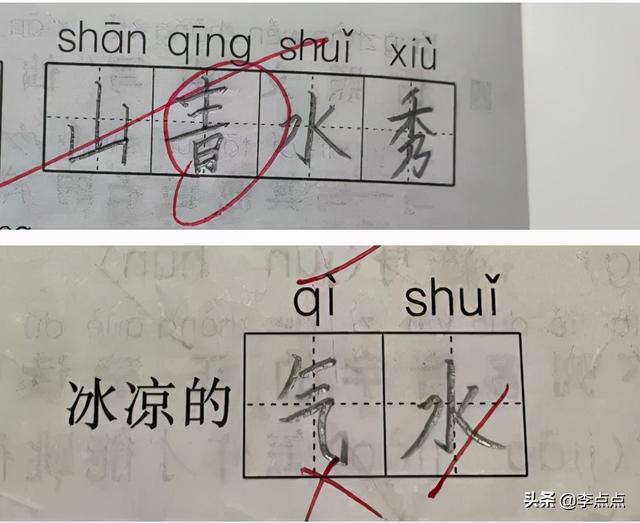 shān qīng shuǐ xiù
山青水秀
qì shuǐ
冰凉的气水
头条 @李点点